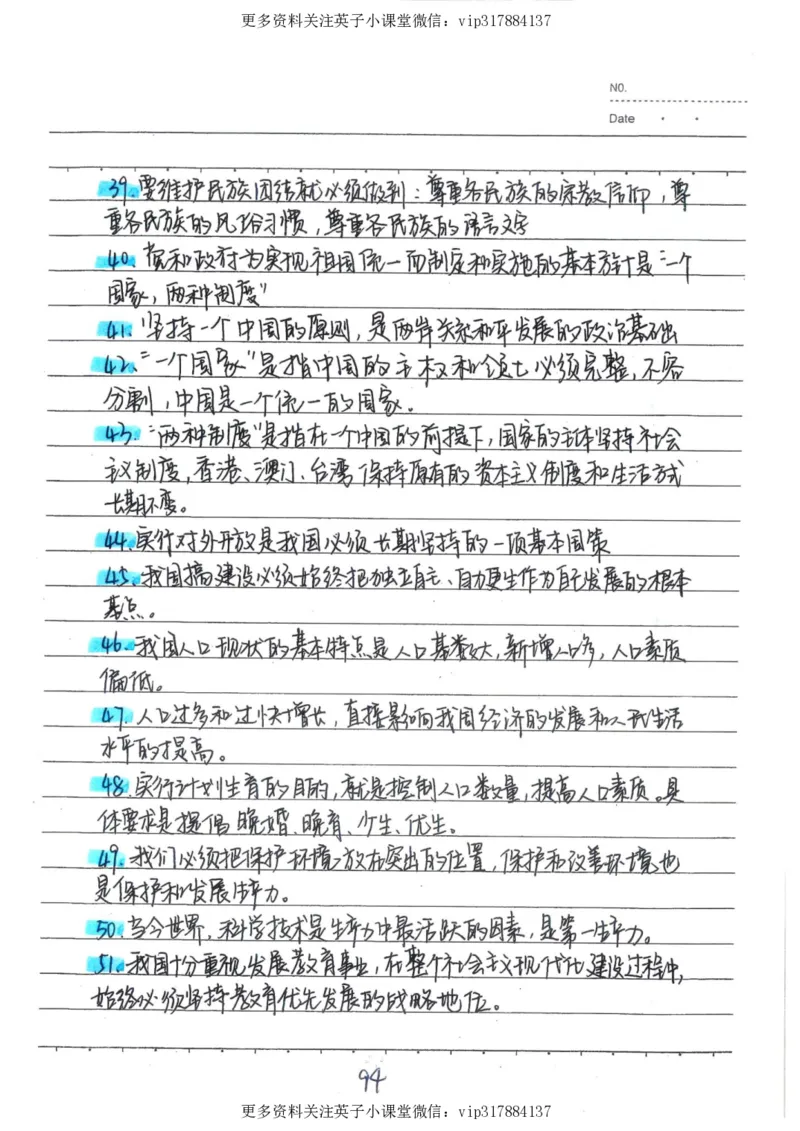 更多资料关注英子小课堂微信：vip317884137
NO.
Date
39.要维护民族团结就必须做到：尊重各民族的宗教信仰，尊
重各民族的风俗习惯，尊重各民族的语言文字
40.党和政府为实现祖国统一而制定和实施的基本方针是“一个
国家，两种制度”
41.坚持一个中国的原则，是两岸关系和平发展的政治基础
42.“一个国家”是指中国的主权和领土必须完整，不容
分割，中国是一个统一的国家。
43.“两种制度”是指在一个中国的前提下，国家的主体坚持社会
主义制度，香港、澳门、台湾保持原有的资本主义制度和生活方式
长期不变。
44.实行对外开放是我国必须长期坚持的一项基本国策
45.我国搞建设必须始终把独立自主、自力更生作为自己发展的根本
基点。
46.我国人口现状的基本特点是人口基数大，新增人口多，人口素质
偏低。
47.人口过多和过快增长，直接影响我国经济的发展和人民生活
水平的提高。
48.实行计划生育的目的，就是控制人口数量，提高人口素质。具
体要求是提倡晚婚、晚育、少生、优生。
49.我们必须把保护环境放在突出的位置，保护和改善环境也
是保护和发展生产力。
50.当今世界，科学技术是生产力中最活跃的因素，是第一生产力。
51.我国十分重视发展教育事业，在整个社会主义现代化建设过程中，
始终必须坚持教育优先发展的战略地位。
94
更多资料关注英子小课堂微信：vip317884137